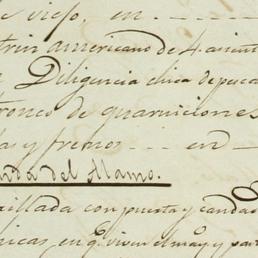 viejo. en - - - -
trin americano de 4. asient
Diligencia chica de pesca
tronco de guarniciones
a y frenos - - en - -
nda del Alamo.
illada con puerta y canda
nicas, en q.e viven el may.o y part